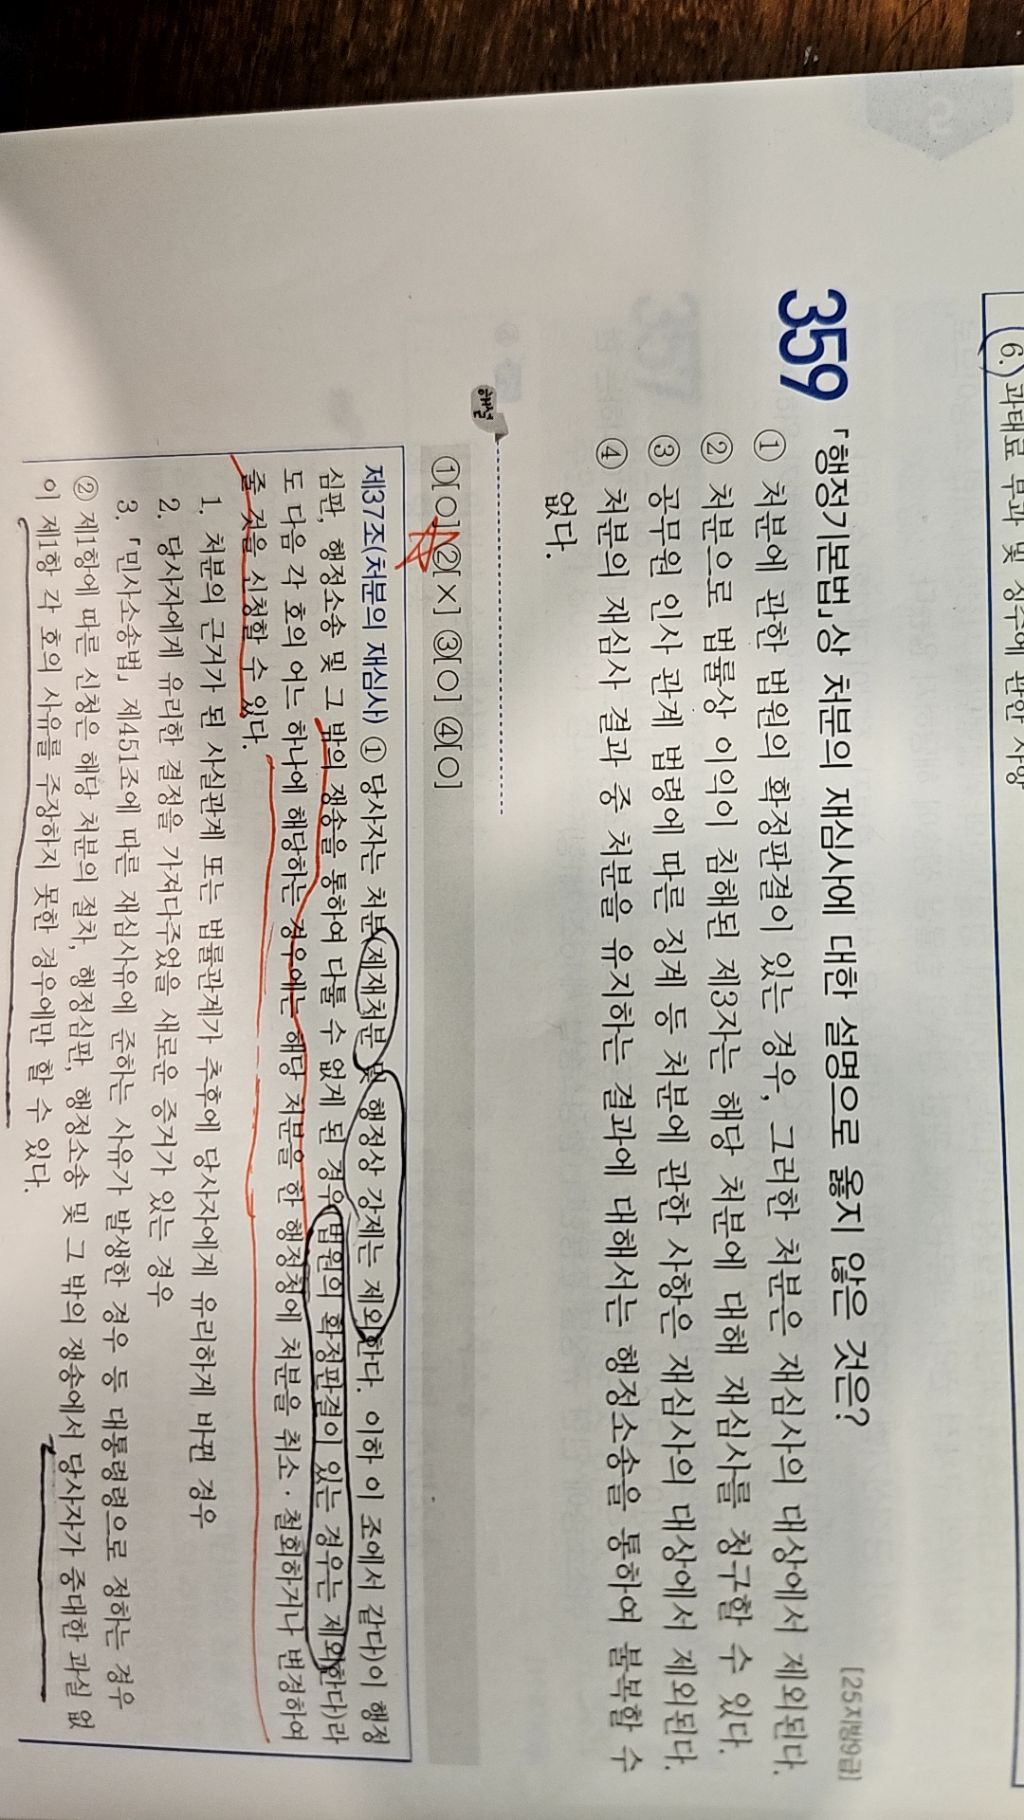 6. 과태료 부과 및 징수에 관한 사항
359 「행정기본법」상 처분의 재심사에 대한 설명으로 옳지 않은 것은?
[25지방9급]
① 처분에 관한 법원의 확정판결이 있는 경우, 그러한 처분은 재심사의 대상에서 제외된다.
② 처분으로 법률상 이익이 침해된 제3자는 해당 처분에 대해 재심사를 청구할 수 있다.
③ 공무원 인사 관계 법령에 따른 징계 등 처분에 관한 사항은 재심사의 대상에서 제외된다.
④ 처분의 재심사 결과 중 처분을 유지하는 결과에 대해서는 행정소송을 통하여 불복할 수
없다.
해설
①[O] ②[×] ③[O] ④[O]
제37조(처분의 재심사) ① 당사자는 처분(제재처분 및 행정상 강제는 제외한다. 이하 이 조에서 같다)이 행정
심판, 행정소송 및 그 밖의 쟁송을 통하여 다툴 수 없게 된 경우(법원의 확정판결이 있는 경우는 제외한다)라
도 다음 각 호의 어느 하나에 해당하는 경우에는 해당 처분을 한 행정청에 처분을 취소·철회하거나 변경하여
줄 것을 신청할 수 있다.
1. 처분의 근거가 된 사실관계 또는 법률관계가 추후에 당사자에게 유리하게 바뀐 경우
2. 당사자에게 유리한 결정을 가져다주었을 새로운 증거가 있는 경우
3. 「민사소송법」 제451조에 따른 재심사유에 준하는 사유가 발생한 경우 등 대통령령으로 정하는 경우
② 제1항에 따른 신청은 해당 처분의 절차, 행정심판, 행정소송 및 그 밖의 쟁송에서 당사자가 중대한 과실 없
이 제1항 각 호의 사유를 주장하지 못한 경우에만 할 수 있다.